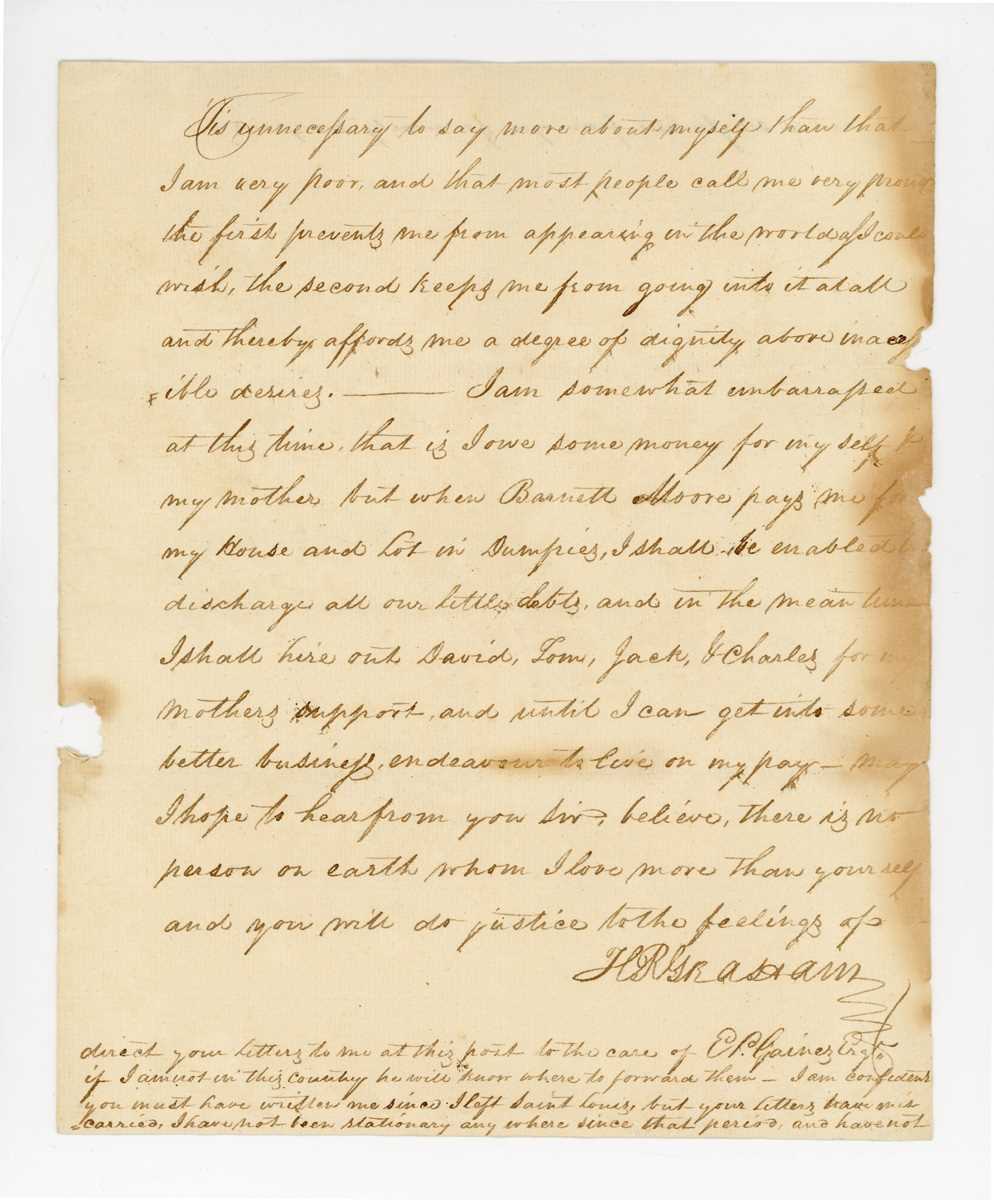 'Tis unnecessary to say more about myself than that
I am very poor, and that most people call me very proud
the first prevents me from appearing in the world as I could
wish, the second keeps me from going into it at all
and thereby affords me a degree of dignity above inacess
=ible desires. ——— I am somewhat embarrassed
at this time, that is I owe some money for my self &
my mother but when Barnett Moore pays me for
my House and Lot in Dumfries, I shall be enabled to
discharge all our little debts, and in the mean time
I shall hire out David, Tom, Jack, & Charles for my
mothers support, and until I can get into some
better business, endeavour to live on my pay — may
I hope to hear from you sir, believe, there is no
person on earth whom I love more than yourself
and you will do justice to the feelings of
H R Graham
direct your letters to me at this post to the care of E P. Gaines Esqr.
if I am not in this country he will know where to forward them — I am confident
you must have written me since I left Saint Louis, but your letters have mis
=carried, I have not been stationary any where since that period, and have not